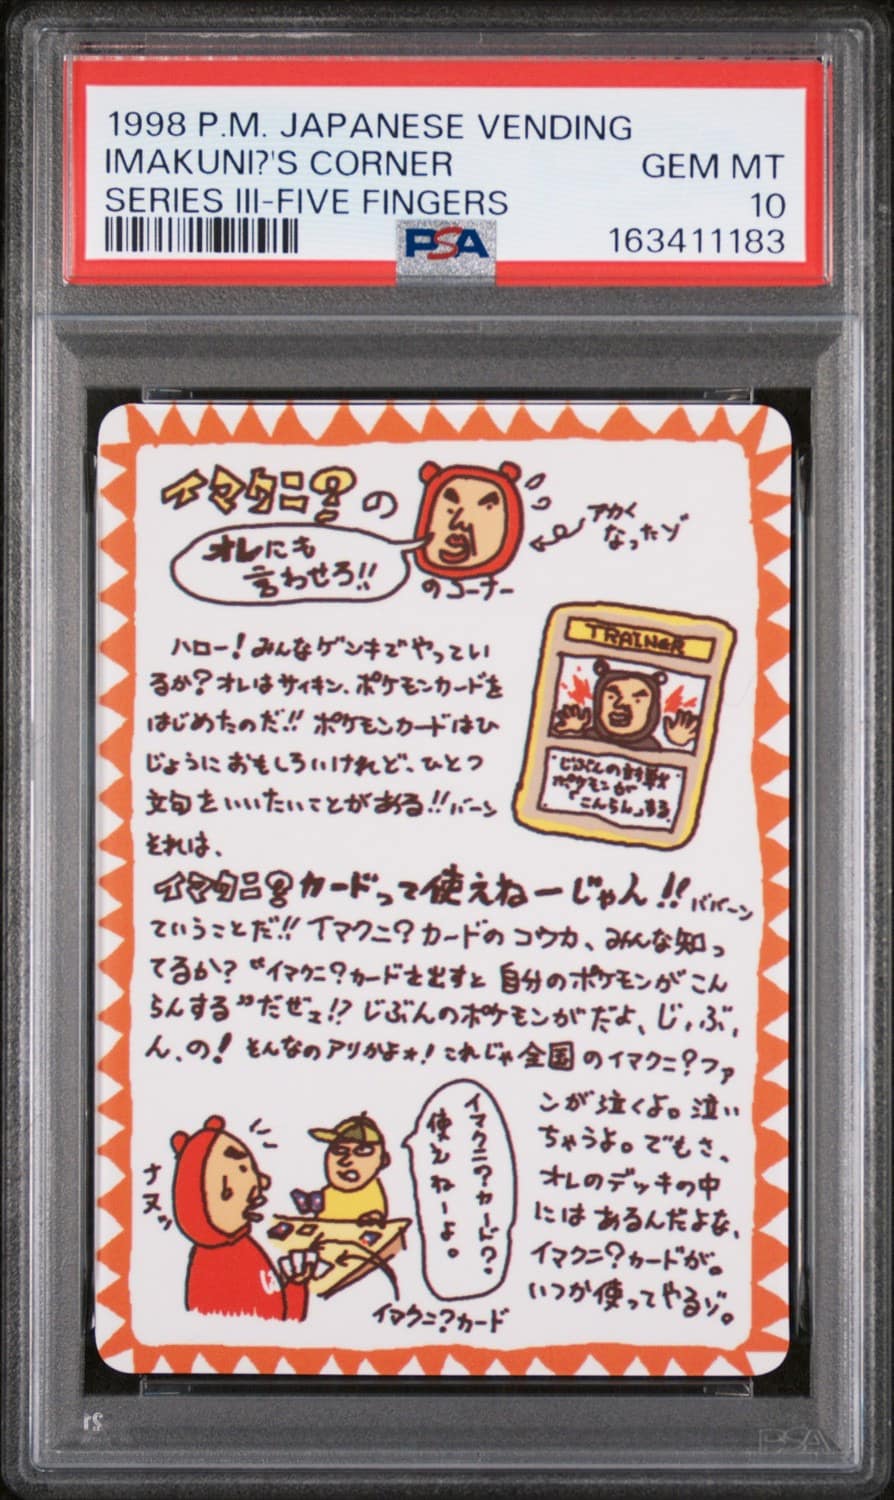 1998 P.M. JAPANESE VENDING
IMAKUNI?'S CORNER
GEM MT
SERIES III-FIVE FINGERS
10
PSA
163411183
イマクニ?の
オレにも
言わせろ!!
のコーナー
アカく
なったゾ
ハロー!みんなゲンキでやってい
るか?オレはサイキン、ポケモンカードを
はじめたのだ!!ポケモンカードはひ
じょうにおもしろいけれど、ひとつ
文句をいいたいことがある!!バーン
それは、
TRAINER
じぶんの対戦
ポケモンが
「こんらん」する
イマクニ?カードって使えねーじゃん!!ババーン
ていうことだ!!イマクニ?カードのコウカ、みんな知っ
てるか?“イマクニ?カードを出すと自分のポケモンがこん
らんする”だぜェ!?じぶんのポケモンがだよ、じ、ぶ、
ん、の!そんなのアリかよォ!これじゃ全国のイマクニ?ファ
ンが泣くよ。泣い
ちゃうよ。でもさ、
オレのデッキの中
にはあるんだよな、
イマクニ?カードが。
いつか使ってやるゾ。
イマクニ?カード?
使えねーよ。
ナヌッ
イマクニ?カード
PSA